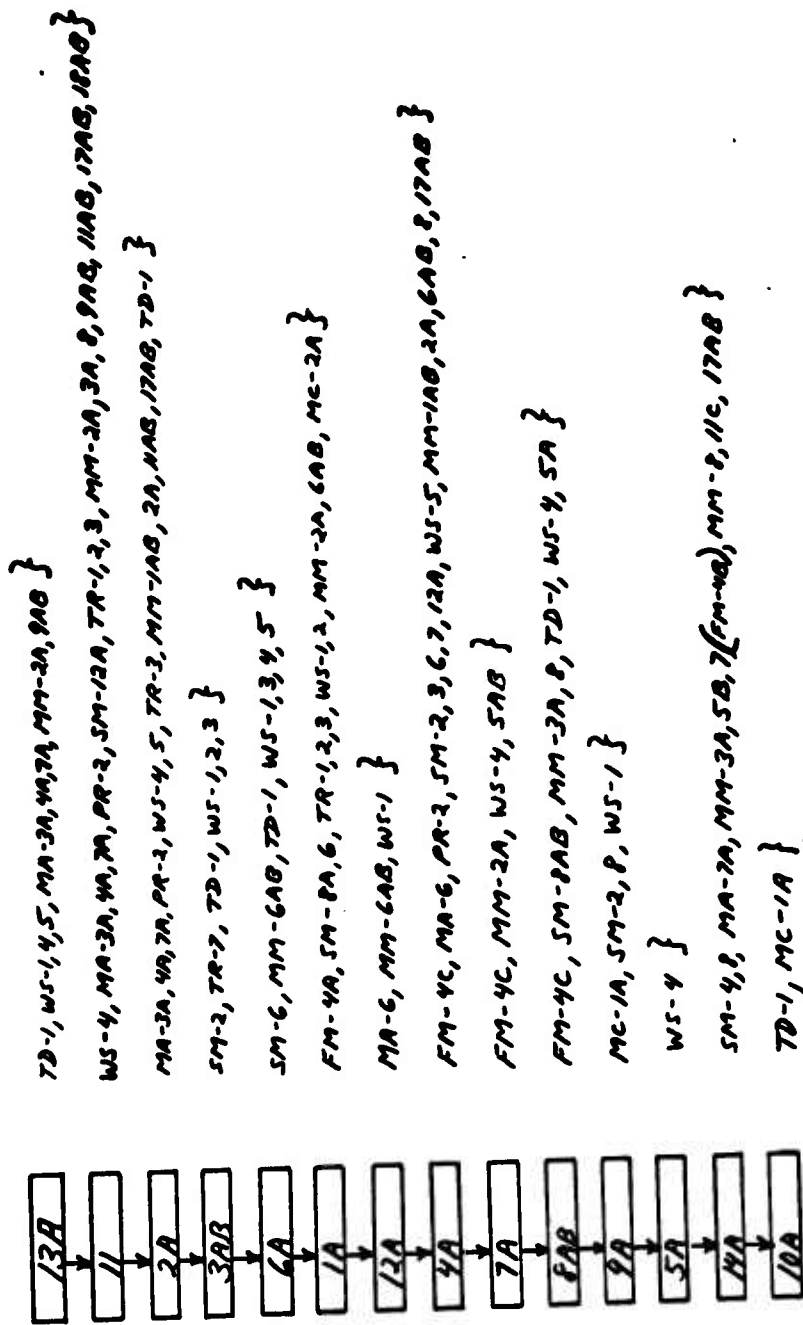 13A TD-1, WS-1,4,5, MA-3A,4A,7A, MM-2A, 9AB }
11 WS-4, MA-3A, 4A, 7A, PR-2, SM-12A, TR-1,2,3, MM-2A, 3A, 8, 9AB, 11AB, 17AB, 18AB }
2A MA-3A, 4A, 7A, PR-2, WS-4, 5, TR-3, MM-1AB, 2A, 11AB, 17AB, TD-1 }
3AB SM-2, TR-7, TD-1, WS-1,2,3 }
6A SM-6, MM-6AB, TD-1, WS-1,3,4,5 }
1A FM-4A, SM-8A, 6, TR-1,2,3, WS-1,2, MM-2A, 6AB, MC-2A }
12A MA-6, MM-6AB, WS-1 }
4A FM-4C, MA-6, PR-2, SM-2,3,6,7,12A, WS-5, MM-1AB, 2A, 6AB, 8, 17AB }
7A FM-4C, MM-2A, WS-4, 5AB }
8AB FM-4C, SM-8AB, MM-3A, 8, TD-1, WS-4, 5A }
9A MC-1A, SM-2, 8, WS-1 }
5A WS-4 }
14A SM-4,8, MA-7A, MM-3A, 5B, 7(FM-4B), MM-8, 11C, 17AB }
10A TD-1, MC-1A }